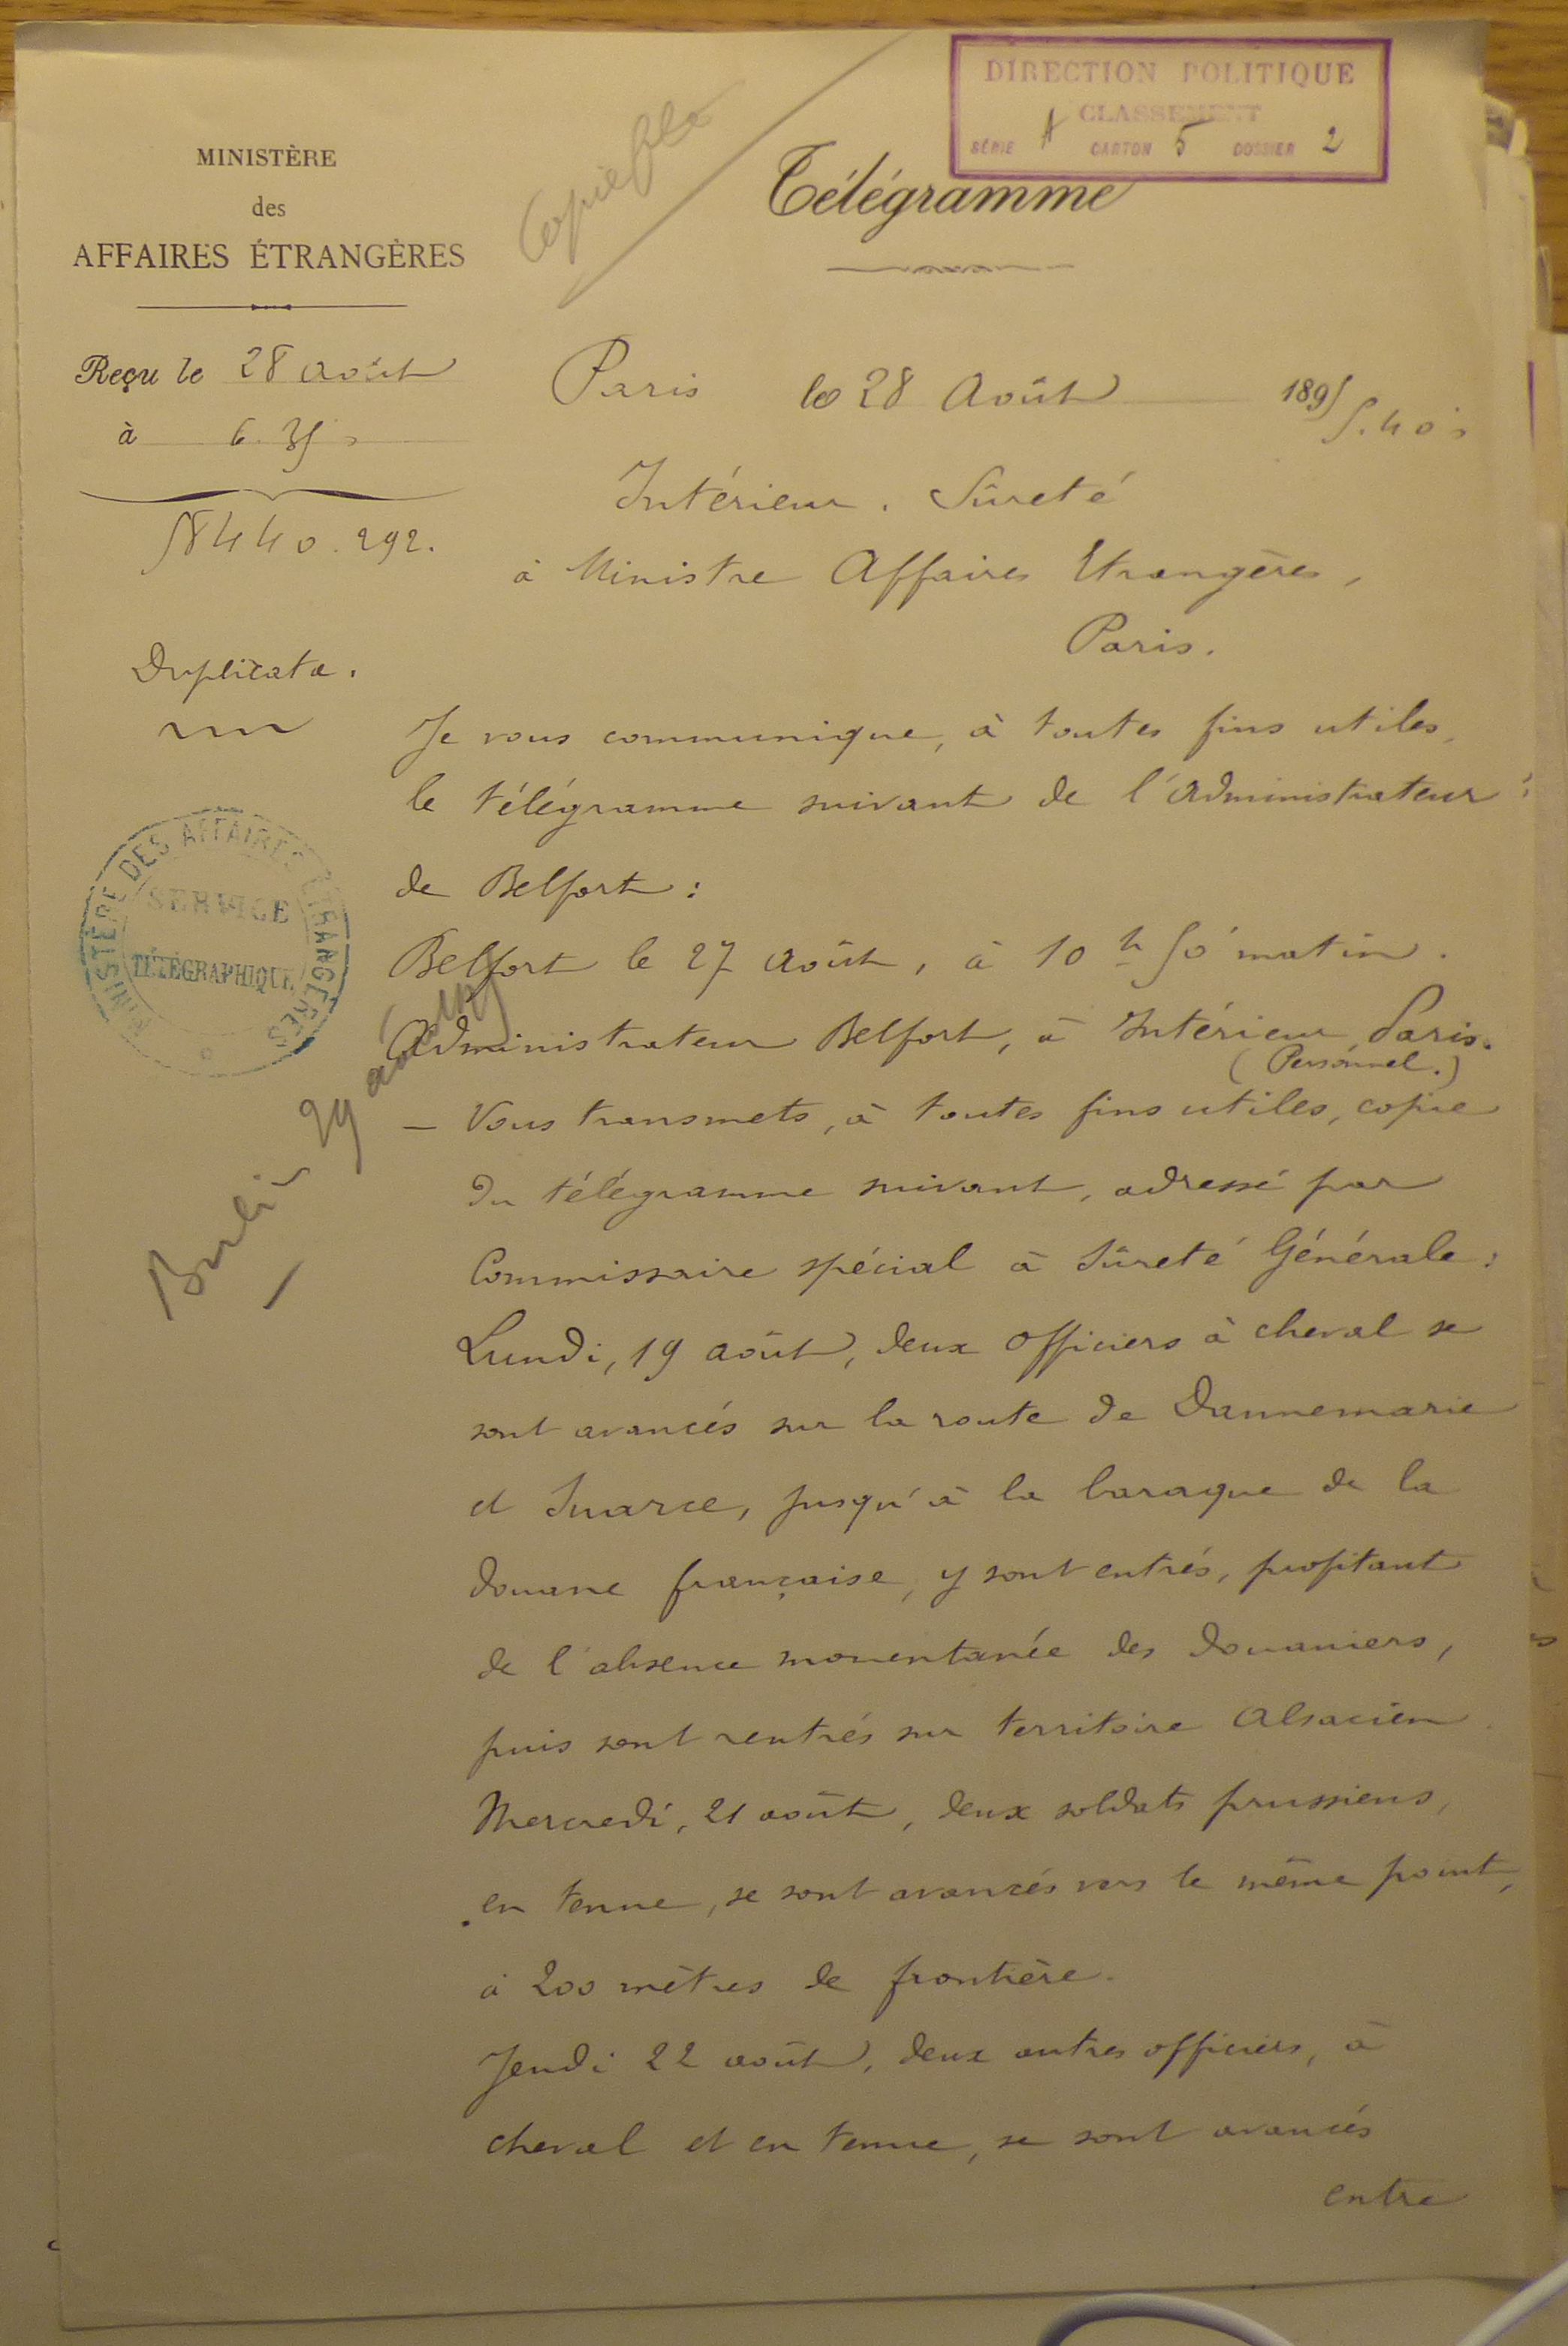 DIRECTION POLITIQUE
CLASSEMENT
SÉRIE A CARTON 5 DOSSIER 2
MINISTÈRE
des
AFFAIRES ÉTRANGÈRES
Télégramme
Reçu le 28 août
à 6.35 s
58440.292.
Duplicata.
MINISTÈRE DES AFFAIRES ÉTRANGÈRES
SERVICE
TÉLÉGRAPHIQUE
29 août
Paris le 28 Août 1895
5.40 s
Intérieur. Sûreté
à Ministre Affaires Etrangères,
Paris.
Je vous communique, à toutes fins utiles,
le télégramme suivant de l'administrateur
de Belfort :
Belfort le 27 août, à 10 h 50 matin.
Administrateur Belfort, à Intérieur Paris.
(Personnel.)
— Vous transmets, à toutes fins utiles, copie
du télégramme suivant, adressé par
Commissaire spécial à Sûreté Générale :
Lundi, 19 août, deux officiers à cheval se
sont avancés sur la route de Dannemarie
et Suarce, jusqu'à la baraque de la
douane française, y sont entrés, profitant
de l'absence momentanée des douaniers,
puis sont rentrés sur territoire alsacien.
Mercredi, 21 août, deux soldats prussiens,
en tenue, se sont avancés vers le même point,
à 200 mètres de frontière.
Jeudi 22 août, deux autres officiers, à
cheval et en tenue, se sont avancés
entre